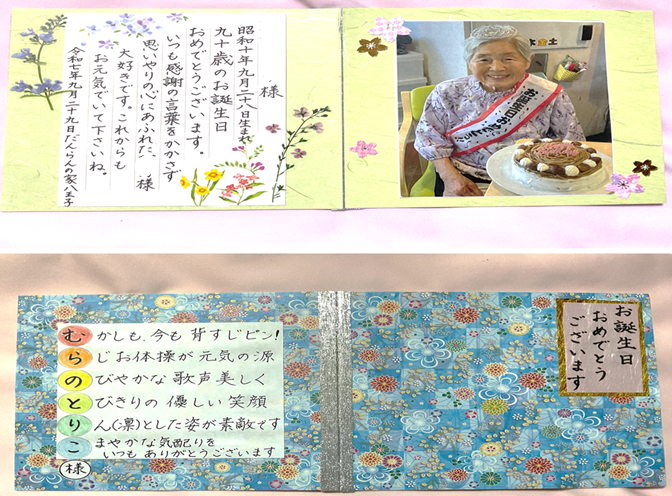 様
昭和十年九月二十八日生まれ
九十歳のお誕生日
おめでとうございます。
いつも感謝の言葉をかかさず
思いやりの心にあふれた、様
大好きです。これからも
お元気でいて下さいね。
令和七年九月二十九日だんらんの家八王子
お誕生日おめでとう
お誕生日
おめでとう
ございます
むかしも、今も背すじピン!
らじお体操が元気の源
のびやかな歌声美しく
とびきりの優しい笑顔
りん(凛)とした姿が素敵です
こまやかな気配りを
いつもありがとうございます
様